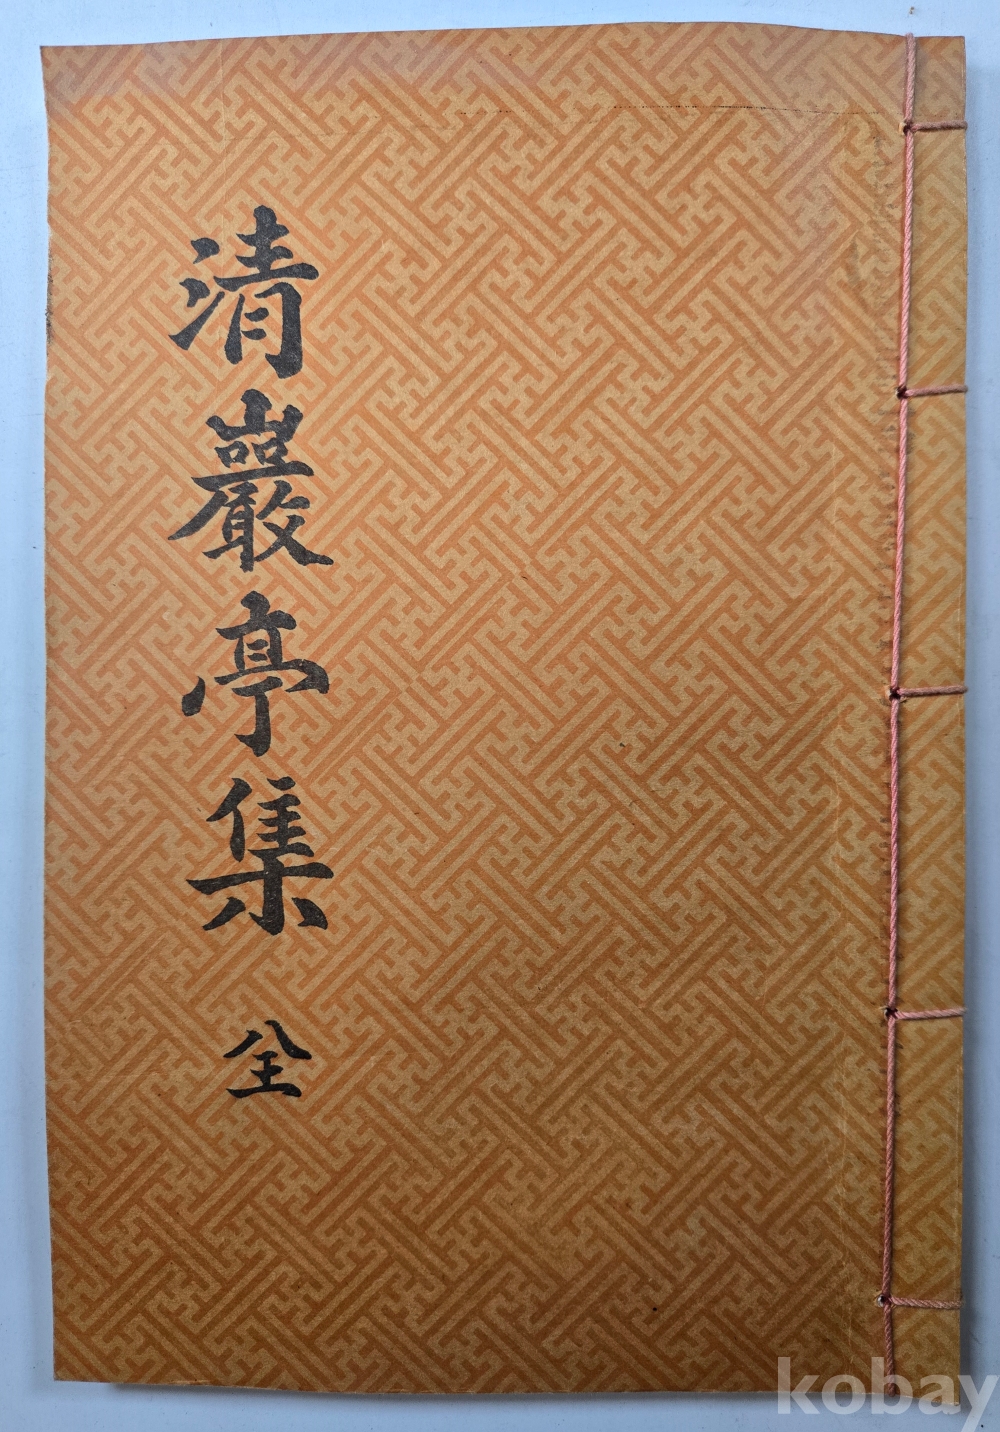 清巖亭集 全
kobay